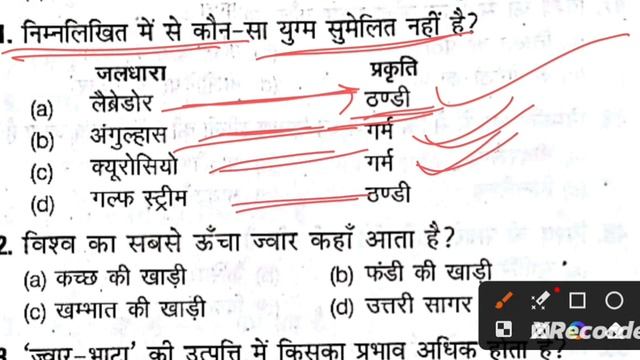 1. निम्नलिखित में से कौन-सा युग्म सुमेलित नहीं है?
जलधारा प्रकृति
(a) लेब्रेडोर ठण्डी
(b) अंगुल्हास गर्म
(c) क्यूरोसियो गर्म
(d) गल्फ स्ट्रीम ठण्डी
2. विश्व का सबसे ऊँचा ज्वार कहाँ आता है?
(a) कच्छ की खाड़ी (b) फंडी की खाड़ी
(c) खम्भात की खाड़ी (d) उत्तरी सागर
3. 'ज्वार-भाटा' की उत्पत्ति में किसका प्रभाव अधिक होता है?